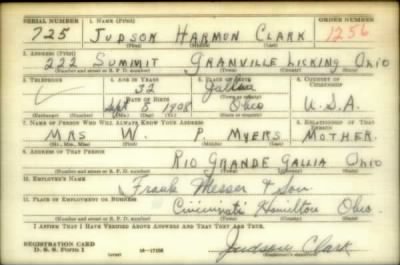 SERIAL NUMBER 1. NAME (Print) ORDER NUMBER
725 JUDSON HARMON CLARK 1256
(First) (Middle) (Last)
2. ADDRESS (Print)
222 SUMMIT GRANVILLE LICKING OHIO
(Number and street or R. F. D. number) (Town) (County) (State)
3. TELEPHONE 4. AGE IN YEARS 5. PLACE OF BIRTH 6. COUNTRY OF CITIZENSHIP
32 Gallia
DATE OF BIRTH
Sept 8 1908 Ohio U.S.A.
(Exchange) (Number) (Mo.) (Day) (Yr.) (State or country)
7. NAME OF PERSON WHO WILL ALWAYS KNOW YOUR ADDRESS 8. RELATIONSHIP OF THAT PERSON
MRS W. P. MYERS MOTHER.
(Mr., Mrs., Miss) (First) (Middle) (Last)
9. ADDRESS OF THAT PERSON
RIO GRANDE GALLIA OHIO
(Number and street or R. F. D. number) (Town) (County) (State)
10. EMPLOYER'S NAME
Frank Messer & Son
11. PLACE OF EMPLOYMENT OR BUSINESS
Cincinnati Hamilton Ohio.
(Number and street or R. F. D. number) (Town) (County) (State)
I AFFIRM THAT I HAVE VERIFIED ABOVE ANSWERS AND THAT THEY ARE TRUE.
REGISTRATION CARD
D. S. S. Form 1 (over) 16-17105 Judson Clark